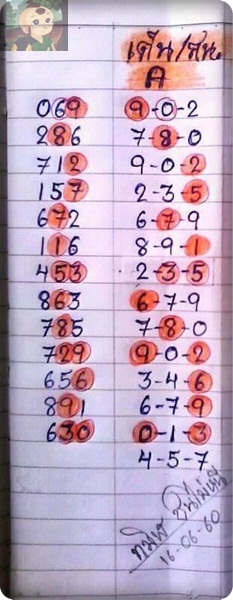 เด่น/ชน
A
069 9-0-2
286 7-8-0
712 9-0-2
157 2-3-5
672 6-7-9
116 8-9-1
453 2-3-5
863 6-7-9
785 7-8-0
729 9-0-2
656 3-4-6
891 6-7-9
630 0-1-3
4-5-7
16-06-60